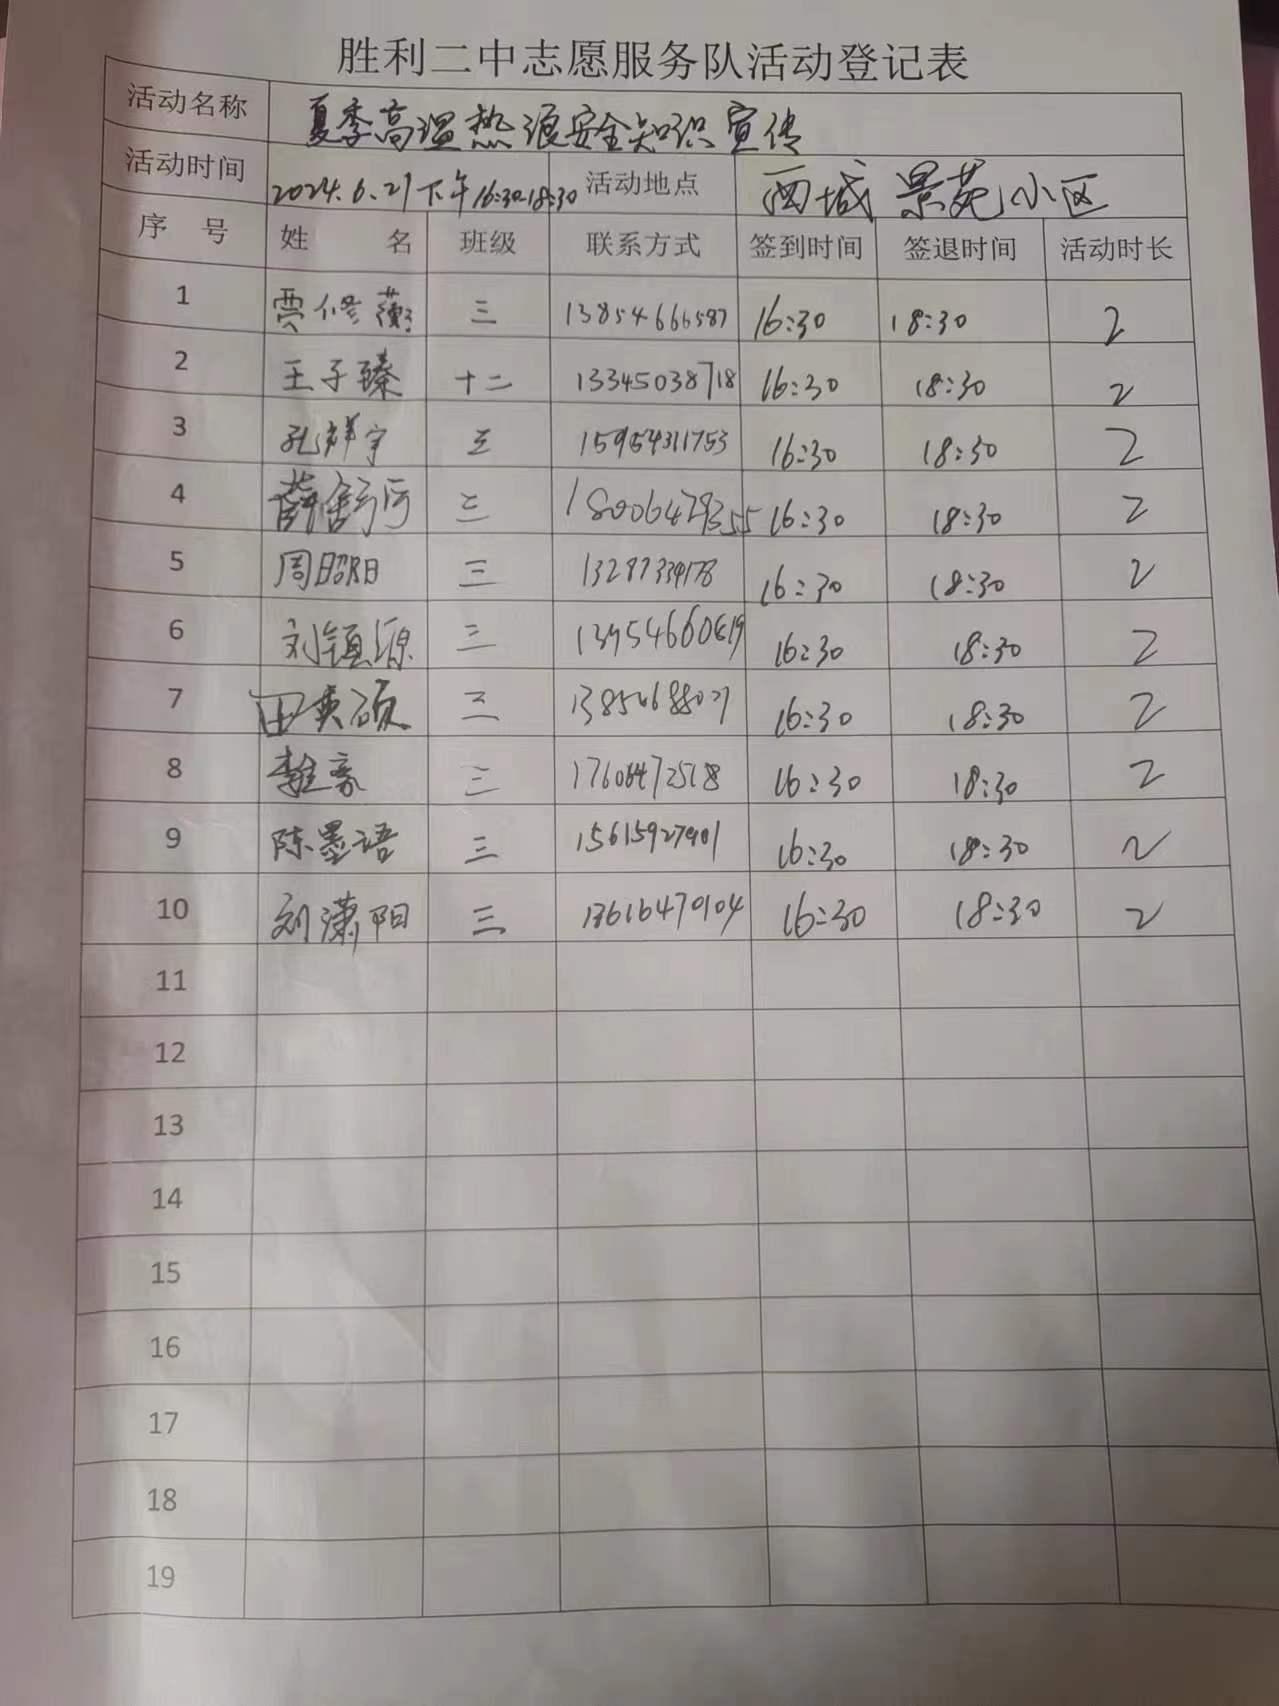 胜利二中志愿服务队活动登记表
活动名称 夏季高温热浪安全知识宣传
活动时间 2024.6.21下午16:30-18:30 活动地点 西城景苑小区
序 号 姓 名 班级 联系方式 签到时间 签退时间 活动时长
1 贾修蘅 三 13854666587 16:30 18:30 2
2 王子臻 十二 13345038718 16:30 18:30 2
3 孔祥宇 三 15954311753 16:30 18:30 2
4 薛舒丙 三 18006478355 16:30 18:30 2
5 周昭阳 三 13287334178 16:30 18:30 2
6 刘镇源 三 13954660619 16:30 18:30 2
7 田奕硕 三 13854688021 16:30 18:30 2
8 三 17606472518 16:30 18:30 2
9 陈墨语 三 15615927901 16:30 18:30 2
10 刘潇阳 三 13616470104 16:30 18:30 2
11
12
13
14
15
16
17
18
19